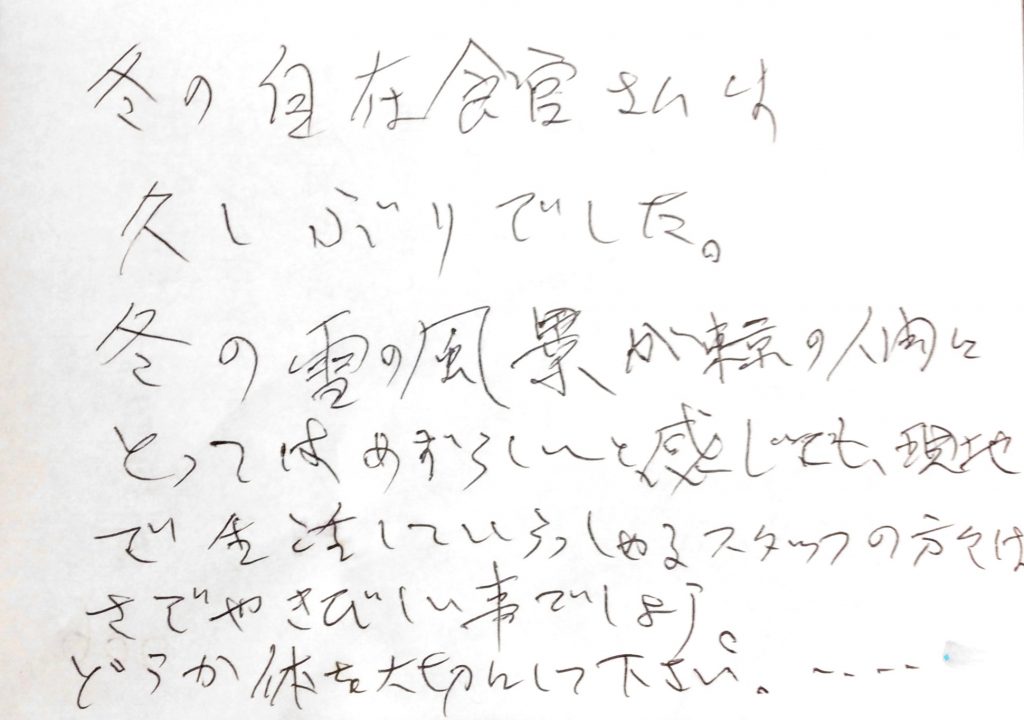 冬の自在館さんは
久しぶりでした。
冬の雪の風景が東京の人間に
とってはめずらしいと感じても、現地
で生活していらっしゃるスタッフの方々は
さぞやきびしい事でしょう。
どうか体を大切にして下さい。----